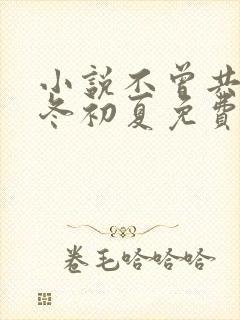 小說不曾共
冬初夏免費
卷毛哈哈哈